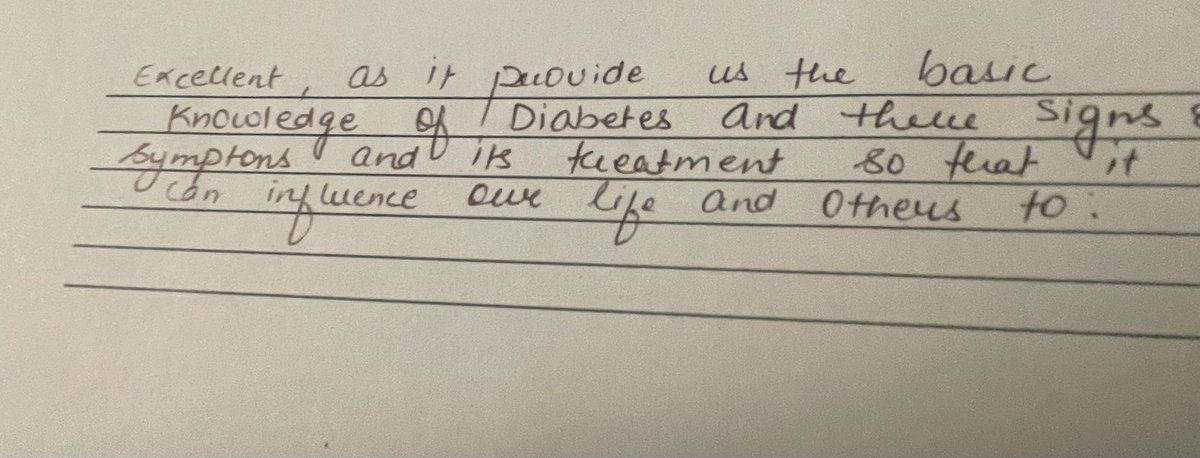 Excellent, as it provide us the basic
Knowledge of Diabetes and there signs &
symptons and its treatment so that it
can influence our life and others to.